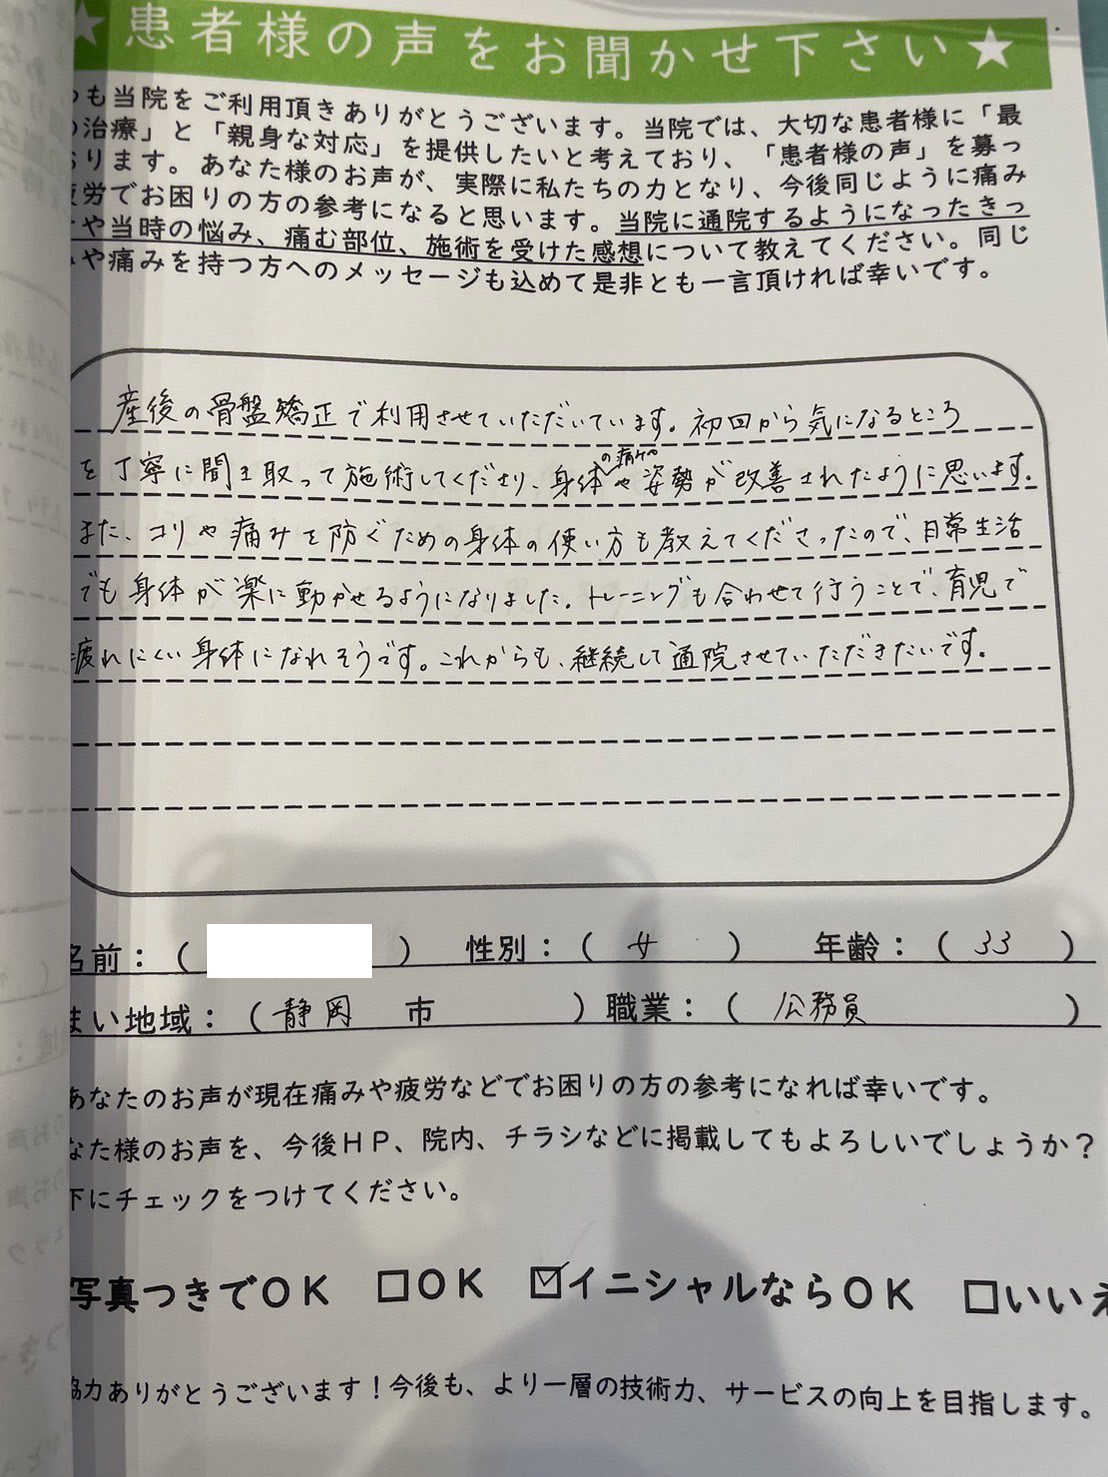 ★患者様の声をお聞かせ下さい★
も当院をご利用頂きありがとうございます。当院では、大切な患者様に「最
治療」と「親身な対応」を提供したいと考えており、「患者様の声」を募っ
ります。あなた様のお声が、実際に私たちの力となり、今後同じように痛み
労でお困りの方の参考になると思います。当院に通院するようになったきっ
や当時の悩み、痛む部位、施術を受けた感想について教えてください。同じ
や痛みを持つ方へのメッセージも込めて是非とも一言頂ければ幸いです。
産後の骨盤矯正で利用させていただいています。初回から気になるところ
を丁寧に聞き取って施術してくださり、身体の痛みや姿勢が改善されたように思います。
また、コリや痛みを防ぐための身体の使い方も教えてくださったので、日常生活
でも身体が楽に動かせるようになりました。トレーニングも合わせて行うことで、育児で
疲れにくい身体になれそうです。これからも、継続して通院させていただきたいです。
名前：（　　　）　性別：（女）　年齢：（33）
まい地域：（静岡　市　）職業：（公務員）
あなたのお声が現在痛みや疲労などでお困りの方の参考になれば幸いです。
なた様のお声を、今後ＨＰ、院内、チラシなどに掲載してもよろしいでしょうか？
下にチェックをつけてください。
写真つきでＯＫ　□ＯＫ　☑イニシャルならＯＫ　□いいえ
協力ありがとうございます！今後も、より一層の技術力、サービスの向上を目指します。